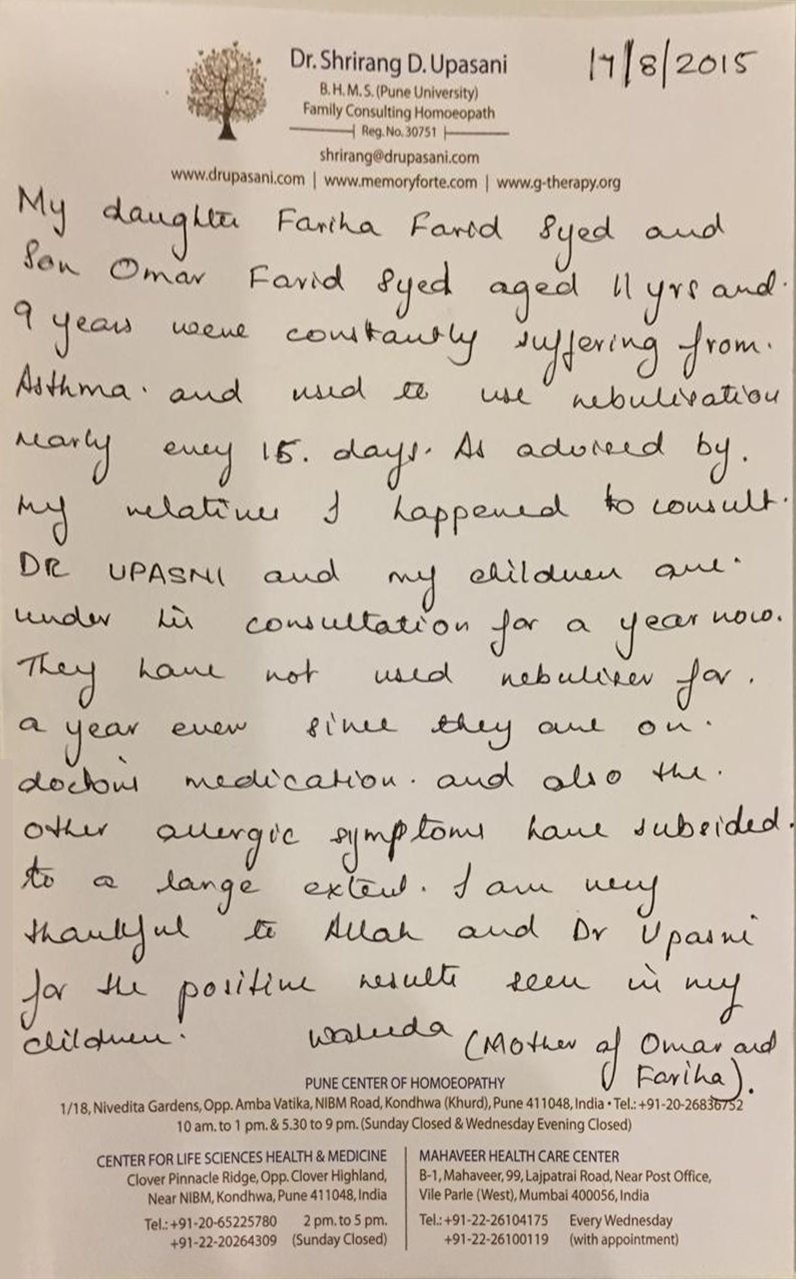 Dr. Shrirang D. Upasani
17/8/2015
B. H. M. S. (Pune University)
Family Consulting Homoeopath
Reg. No. 30751
shrirang@drupasani.com
www.drupasani.com | www.memoryforte.com | www.g-therapy.org
My daughter Fariha Farid Syed and
Son Omar Farid Syed aged 11 yrs and.
9 years were constantly suffering from.
Asthma. and used to use nebulisation
nearly every 15. days. As advised by.
my relatives I happened to consult.
DR UPASNI and my children are.
under his consultation for a year now.
They have not used nebuliser for.
a year ever since they are on.
doctors medication. and also the.
other allergic symptoms have subsided.
to a large extent. I am very
thankful to Allah and Dr Upasni
for the positive results seen in my
children. (Mother of Omar and
Fariha).
PUNE CENTER OF HOMOEOPATHY
1/18, Nivedita Gardens, Opp. Amba Vatika, NIBM Road, Kondhwa (Khurd), Pune 411048, India • Tel.: +91-20-26836752
10 am. to 1 pm. & 5.30 to 9 pm. (Sunday Closed & Wednesday Evening Closed)
CENTER FOR LIFE SCIENCES HEALTH & MEDICINE
Clover Pinnacle Ridge, Opp. Clover Highland,
Near NIBM, Kondhwa, Pune 411048, India
Tel.: +91-20-65225780 2 pm. to 5 pm.
+91-22-20264309 (Sunday Closed)
MAHAVEER HEALTH CARE CENTER
B-1, Mahaveer, 99, Lajpatrai Road, Near Post Office,
Vile Parle (West), Mumbai 400056, India
Tel.: +91-22-26104175 Every Wednesday
+91-22-26100119 (with appointment)